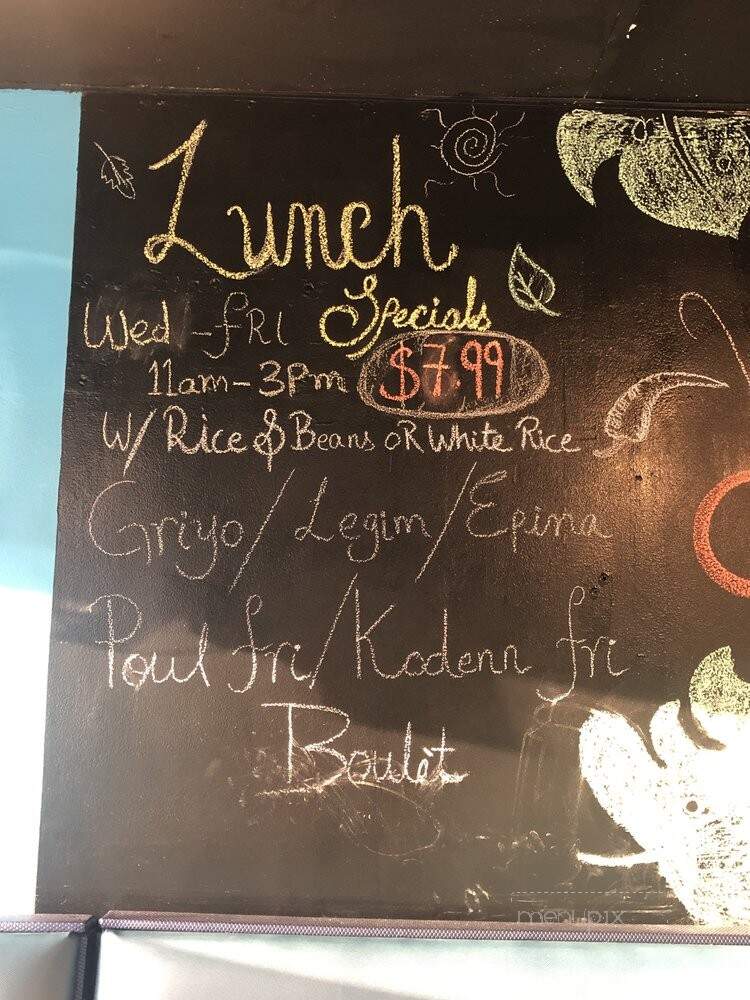 Lunch
Specials
Wed - fRI
11am - 3pm $7.99
W/ Rice & Beans oR White Rice
Griyo / Legim / Epina
Poul fri / Kodenn fri
Boulèt
menupix